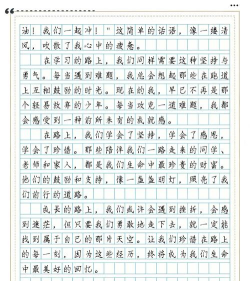 油！我们一起冲！"这简单的话语，像一缕清
风，吹散了我心中的疲惫。
在学习的路上，我们同样需要这种坚持与
勇气。每当遇到难题，我总会想起那些在跑道
上互相鼓励的时光。现在的我，早已不再是那
个轻易放弃的少年。每当攻克一道难题，我都
会感受到一种前所未有的成就感。
在路上，我们学会了坚持，学会了感恩，
学会了珍惜。那些陪伴我们一路走来的同学、
老师和家人，都是我们生命中最珍贵的财富。
他们的鼓励和支持，像一盏盏明灯，照亮了我
们前行的道路。
成长的路上，我们或许会遇到挫折，会感
到迷茫，但只要我们勇敢地走下去，就一定能
找到属于自己的那片天空。让我们珍惜在路上
的每一刻，因为这些经历，终将成为我们生命
中最美好的回忆。